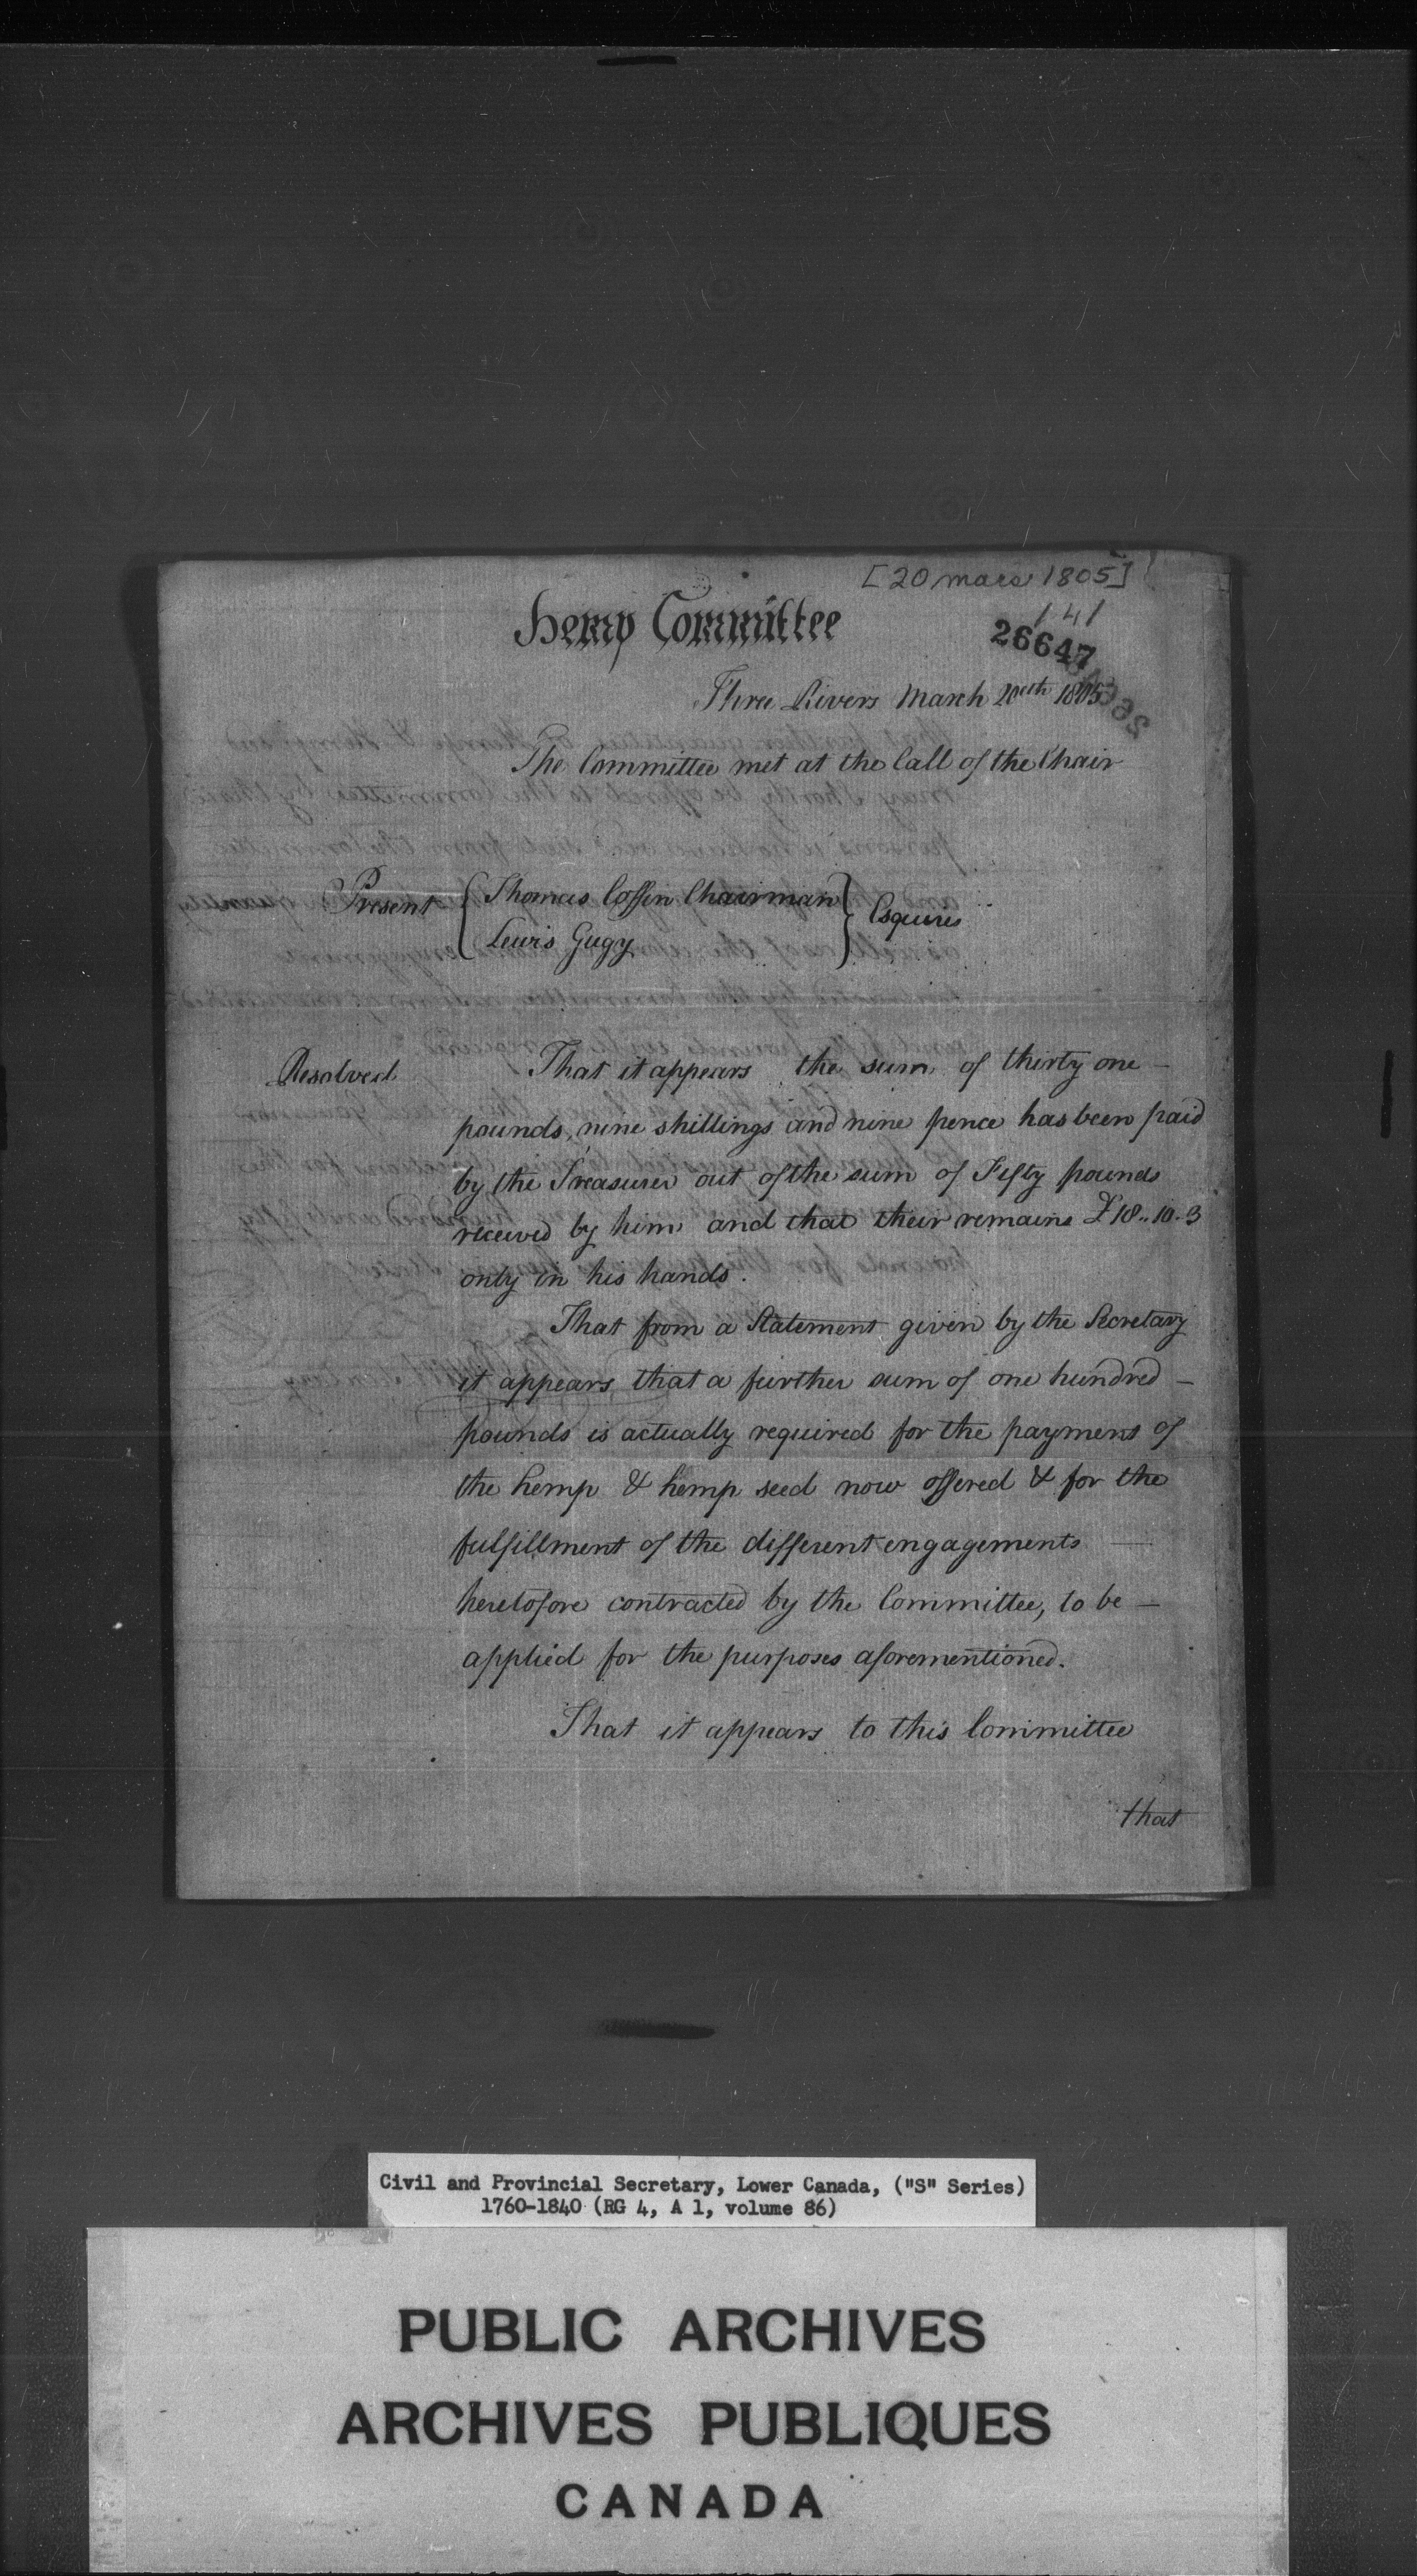 [20 mars 1805]
Hemp Committee
141
26647
Three Rivers March 20eth 1805
The Committee met at the Call of the Chair
Present { Thomas Coffin Chairman } Esquires
Lewis Gugy
Resolved That it appears the sum of thirty one —
pounds, nine shillings and nine pence has been paid
by the Treasurer out of the sum of Fifty pounds
received by him and that their remains £18..10.3
only in his hands.
That from a Statement given by the Secretary
it appears that a further sum of one hundred —
pounds is actually required for the payment of
the hemp & hemp seed now offered & for the
fulfillment of the different engagements —
heretofore contracted by the Committee, to be —
applied for the purposes aforementioned.
That it appears to this Committee
that
Civil and Provincial Secretary, Lower Canada, ("S" Series)
1760-1840 (RG 4, A 1, volume 86)
PUBLIC ARCHIVES
ARCHIVES PUBLIQUES
CANADA